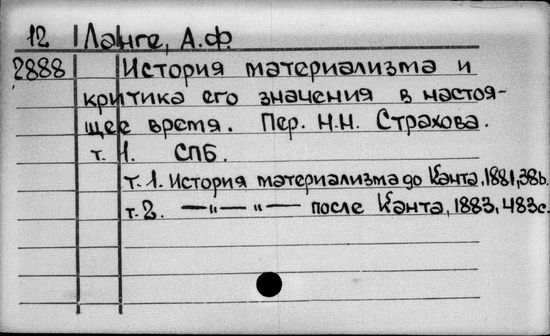 12 Ланге, А.Ф.
2888 История материализма и
критика его значения в настоя-
щее время. Пер. Н.Н. Страхова.
т. 1. СПБ.
т. 1. История материализма до Канта, 1881, 38
т. 2. —"— "— после Канта, 1883, 483с.